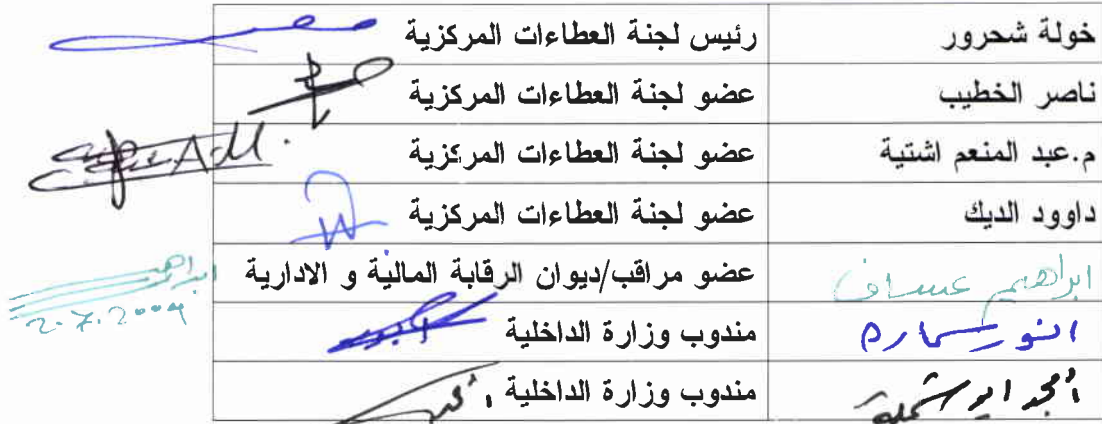 خولة شحرور رئيس لجنة العطاءات المركزية
ناصر الخطيب عضو لجنة العطاءات المركزية
م.عبد المنعم اشتية عضو لجنة العطاءات المركزية
داوود الديك عضو لجنة العطاءات المركزية
ابراهيم عساف عضو مراقب/ديوان الرقابة المالية و الادارية ابراهيم
2.7.2009
انور سماره مندوب وزارة الداخلية
امجد ابو شملة مندوب وزارة الداخلية